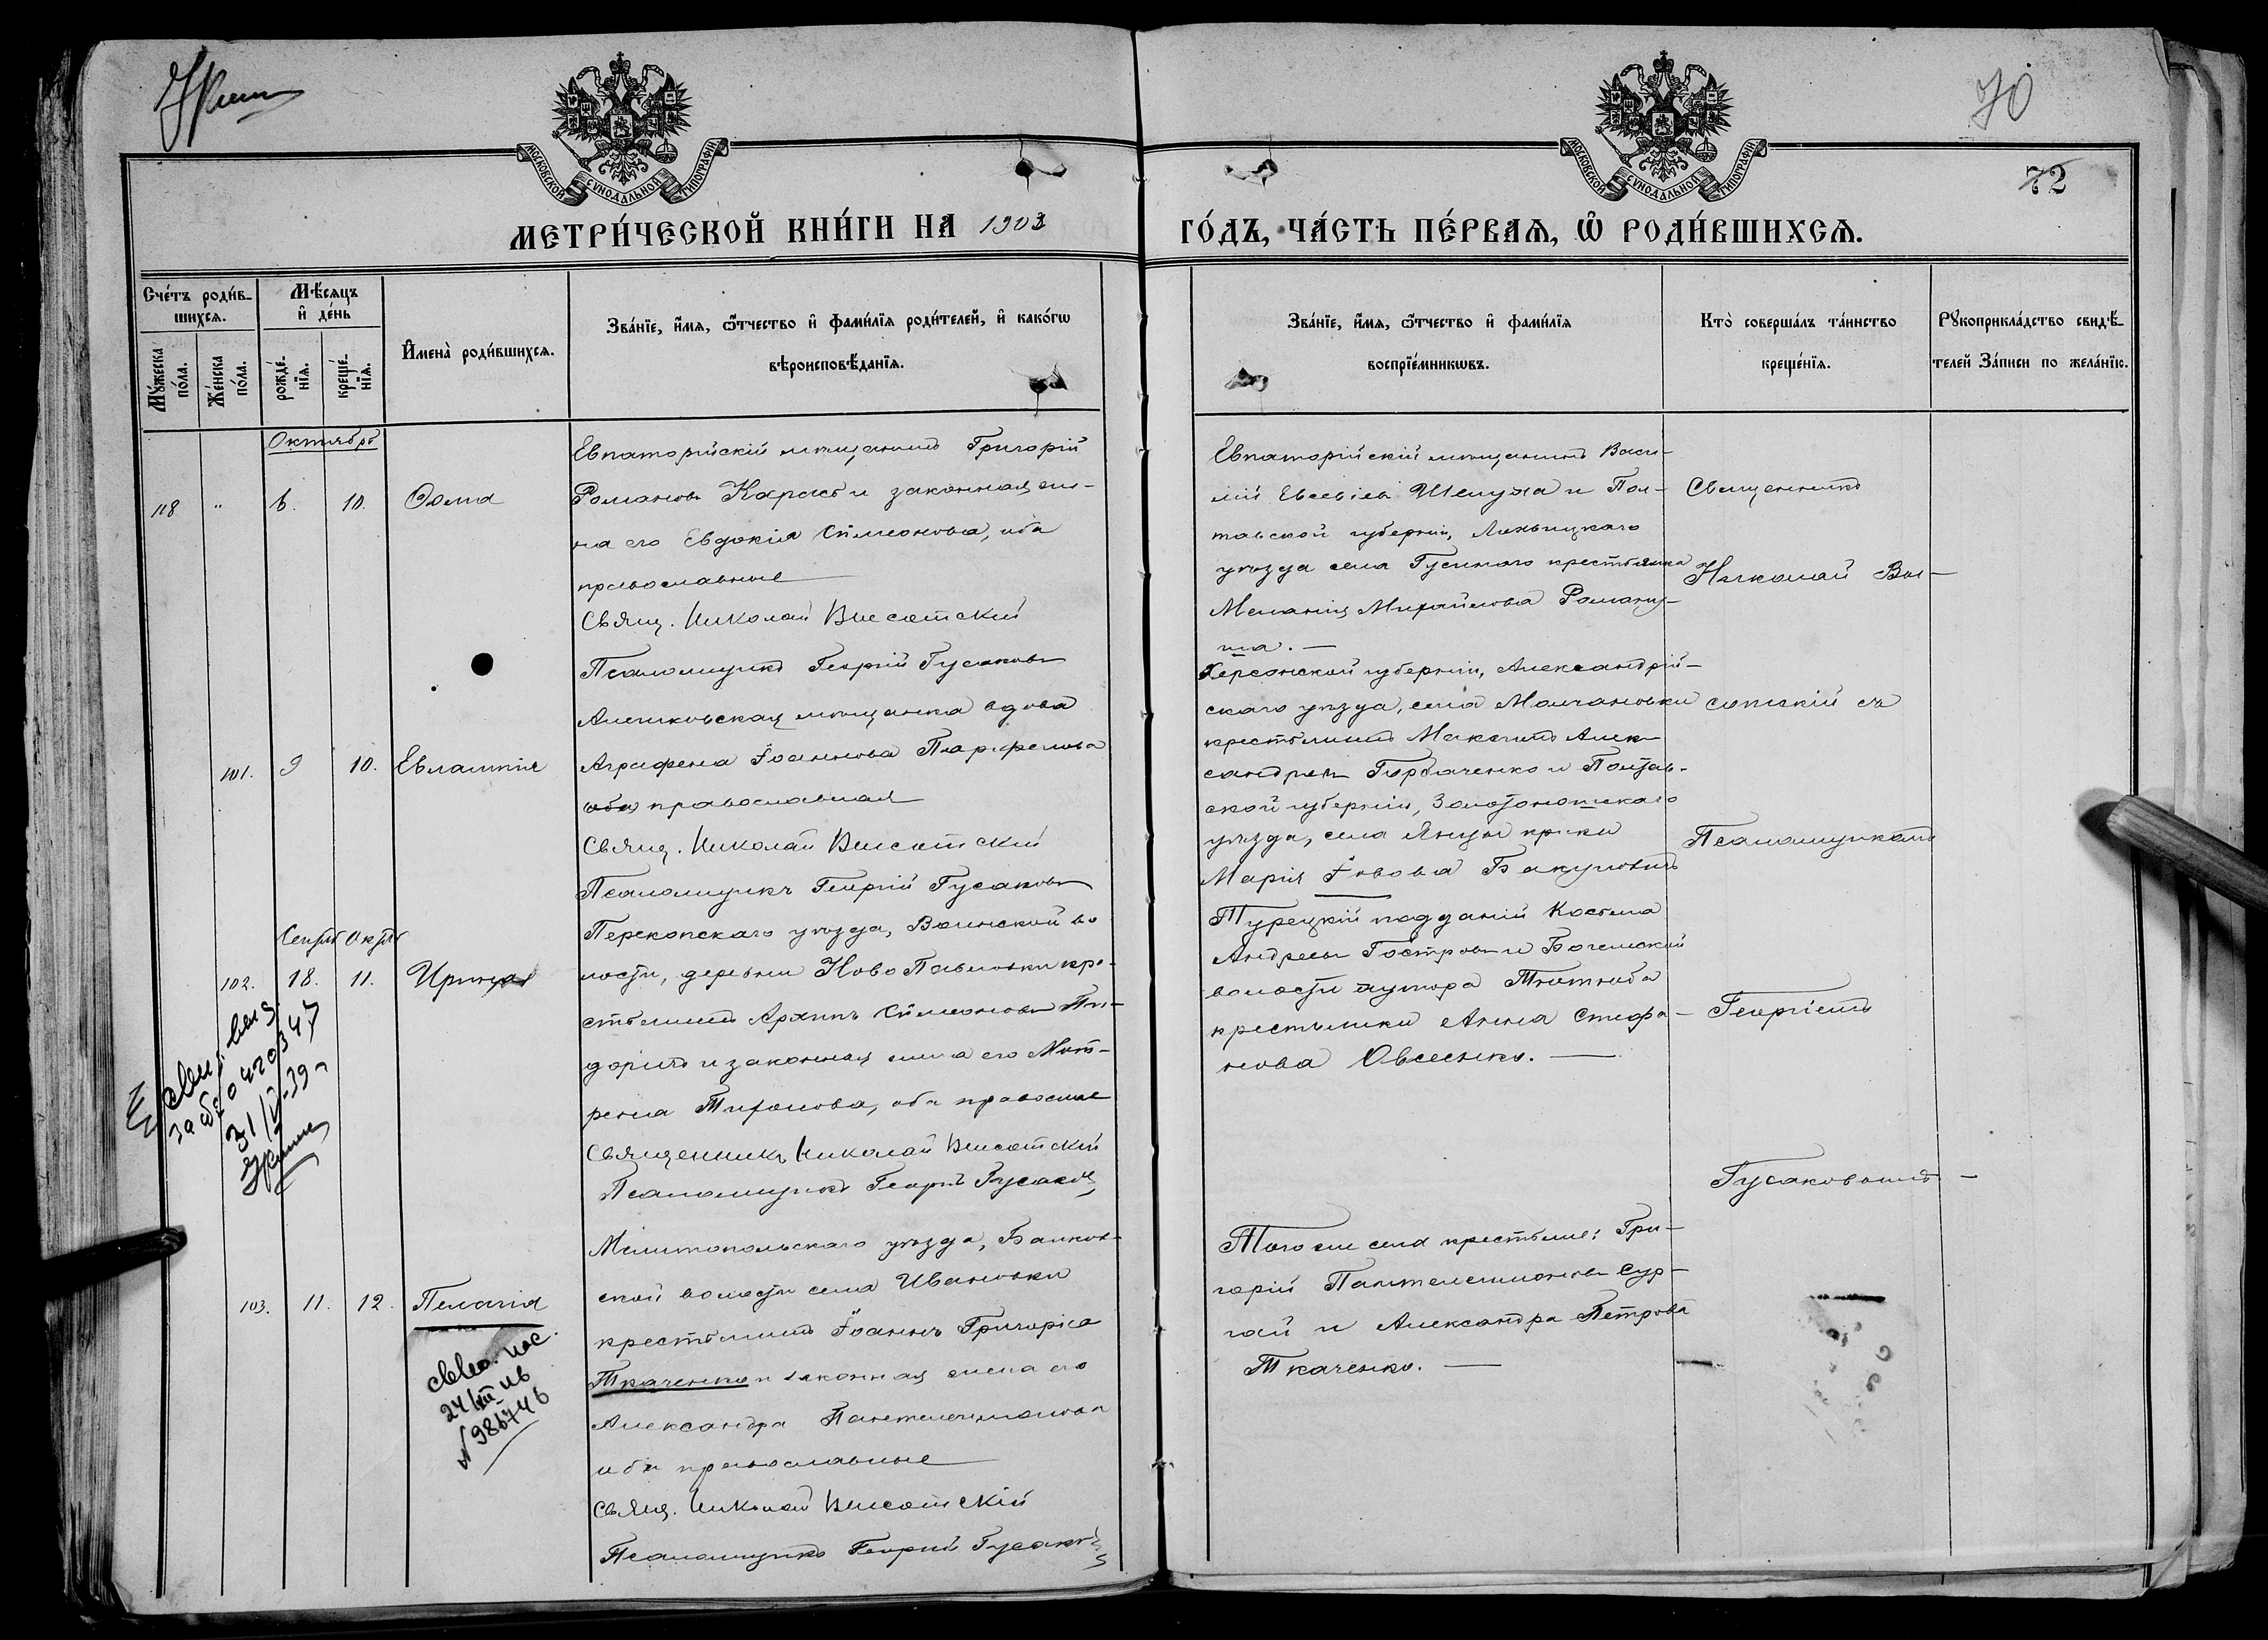 70
72
МОСКОВСКОЙ СѴНОДАЛЬНОЙ ТИПОГРАФІИ
МОСКОВСКОЙ СѴНОДАЛЬНОЙ ТИПОГРАФІИ
МЕТРИ́ЧЕСКОЙ КНИ́ГИ НА 1903 ГО́ДЪ, ЧА́СТЬ ПЕ́РВАѦ, Ѿ РОДИ́ВШИХСѦ.
Сче́тъ роди́в-
шихсѧ.
Мꙋ́жеска по́ла.
Же́нска по́ла.
Мѣ́сѧцъ
и҆ де́нь
рожде́-
нїѧ.
креще́-
нїѧ.
И҆мена̀ роди́вшихсѧ.
Зва́нїе, и҆́мѧ, ѻ҆́тчество и҆ фами́лїѧ роди́телей, и҆ како́гѡ
вѣроисповѣ́данїѧ.
Зва́нїе, и҆́мѧ, ѻ҆́тчество и҆ фами́лїѧ
воспрїе́мникѡвъ.
Кто̀ соверша́лъ та́инство
креще́нїѧ.
Рꙋкоприкла́дство свидѣ́-
телей за́писи по жела́нїю.
Октябрь
118 " 6. 10. Ѳома
Евпаторійскій мѣщанинъ Григорій
Романовъ Карась и законная же-
на его Евдокія Сѵмеонова, оба
православные
Свящ. Николай Высотскій
Псаломщикъ Георгій Гусаковъ
Евпаторійскій мѣщанинъ Васи-
лій Евсевіевъ Шелуха и Пол-
тавской губерніи,
уѣзда села Гусинаго крестьянка
Меланія Михайлова Роману-
ша. —
101. 9 10. Евлампія
Алешковская мѣщанка вдова
Аграфена Іоаннова Парфенова
(оба) православная
Свящ. Николай Высотскій
Псаломщикъ Георгій Гусаковъ
Херсонской губерніи, Александрій-
скаго уѣзда, села Молчановки
крестьянинъ Максимъ Алек-
сандровъ Горбаченко и Полтав-
ской губерніи, Золотоношскаго
уѣзда, села
Марія Іовова
Сентяб Октяб
102. 18. 11. Ирина
Перекопскаго уѣзда, Воинской во
лости, деревни Ново Павловки кре-
стьянинъ Архипъ Сѵмеоновъ
и законная жена его Мот-
рена Тихонова, оба православные
Священникъ Николай Высотскій
Псаломщикъ Георгій Гусаковъ
Турецкій подданый Косьма
Андреевъ Гостровъ и
волости хутора
крестьянка Анна Стефа-
нова Овсеенко. —
31/V-39 г
103. 11. 12. Пелагія
Мелитопольскаго уѣзда, Балков-
ской волости села Ивановки
крестьянинъ Іоаннъ Григоріев
Ткаченко и законная жена его
Александра Пантелеимонова
оба православные
Свящ. Николай Высотскій
Псаломщикъ Георгій Гусаковъ
Того же села крестьяне: Гри-
горій Пантелеимоновъ Сур-
гай и Александра Петрова
Ткаченко. —
№ 986746
Священникъ
Николай Вы-
сотскій съ
Псаломщикомъ
Георгіемъ
Гусаковымъ —